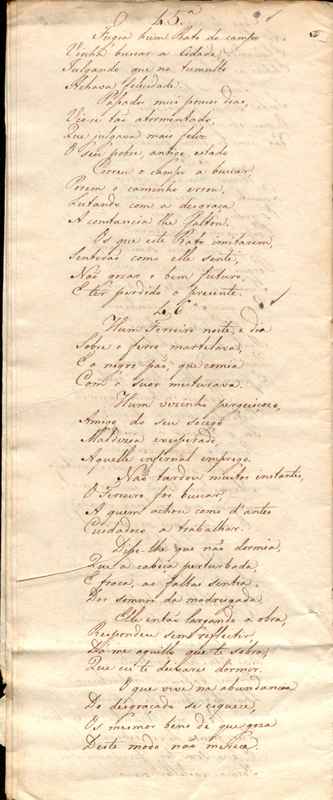 45.ª
Fugia hum Rato do campo
Vinha buscar a Cidade,
Julgando que no tumulto
Achava felicidade.
Passados mui poucos dias,
Vio-se tão atormentado,
Que julgava mais feliz
O seu pobre, antigo estado
Correu o campo a buscar
Porem o caminho errou,
Lutando com a desgraça
A constancia lhe faltou.
Os que este Rato imitarem,
Sentirão como elle sente,
Não gozar o bem futuro
E ter perdido o presente.
46ª
Hum Ferreiro noite, e dia
Sobre o ferro martelava,
E o negro pão, que comia
Com o suor misturava.
Hum vizinho perguiçozo,
Amigo do seu socego
Maldizia exasperado
Aquelle infernal emprego.
Não tardou muitos instantes,
O Ferreiro foi buscar,
A quem achou como d'antes
Cuidadozo a trabalhar.
Disse-lhe que não dormia,
Que a cabeça perturbada,
E fraca, as faltas sentia
Dos somnos da madrugada
Elle então largando a obra,
Respondeu sem reflectir
Dá-me aquillo que te sobra,
Que eu te deixarei dormir.
O que vive na abundancia
Do desgraçado se esquece,
Os mesmos bens de que goza
Deste modo não merece.